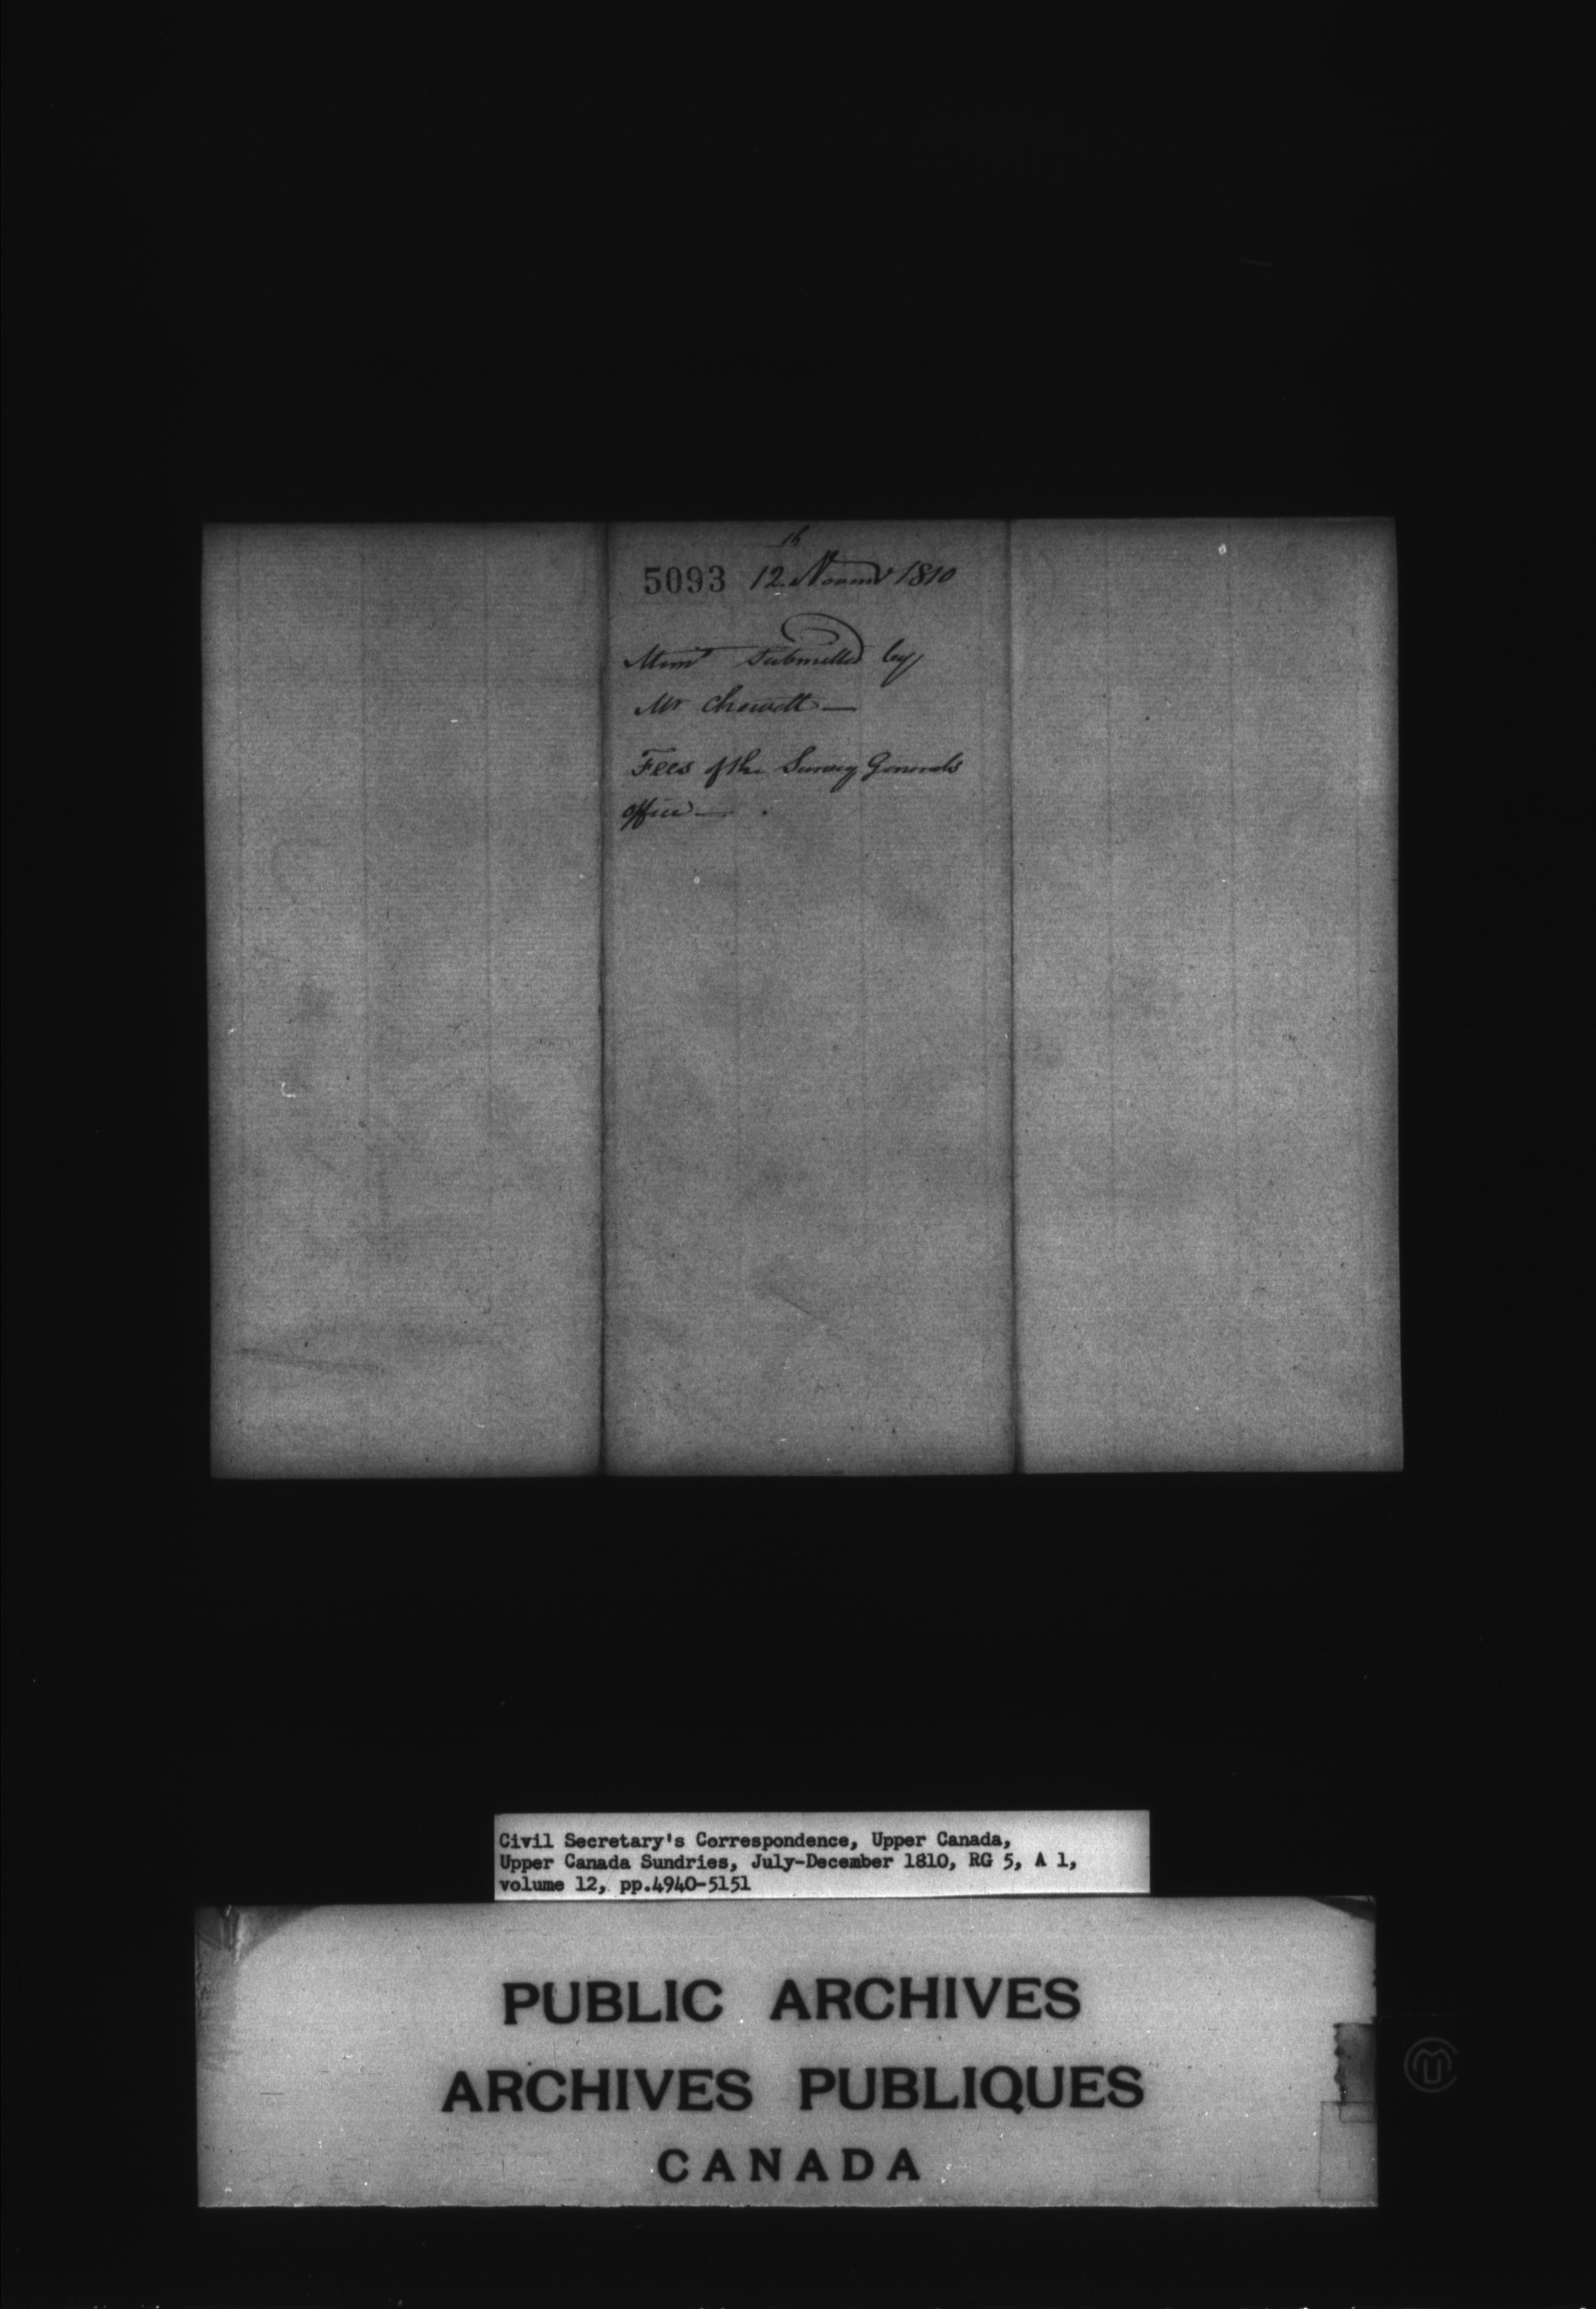 th
5093 12 Novemr 1810
Memo Submitted by
Mr Chewett —
Fees of the Survey Generals
Office —
Civil Secretary's Correspondence, Upper Canada,
Upper Canada Sundries, July-December 1810, RG 5, A 1,
volume 12, pp.4940-5151
PUBLIC ARCHIVES
ARCHIVES PUBLIQUES
CANADA